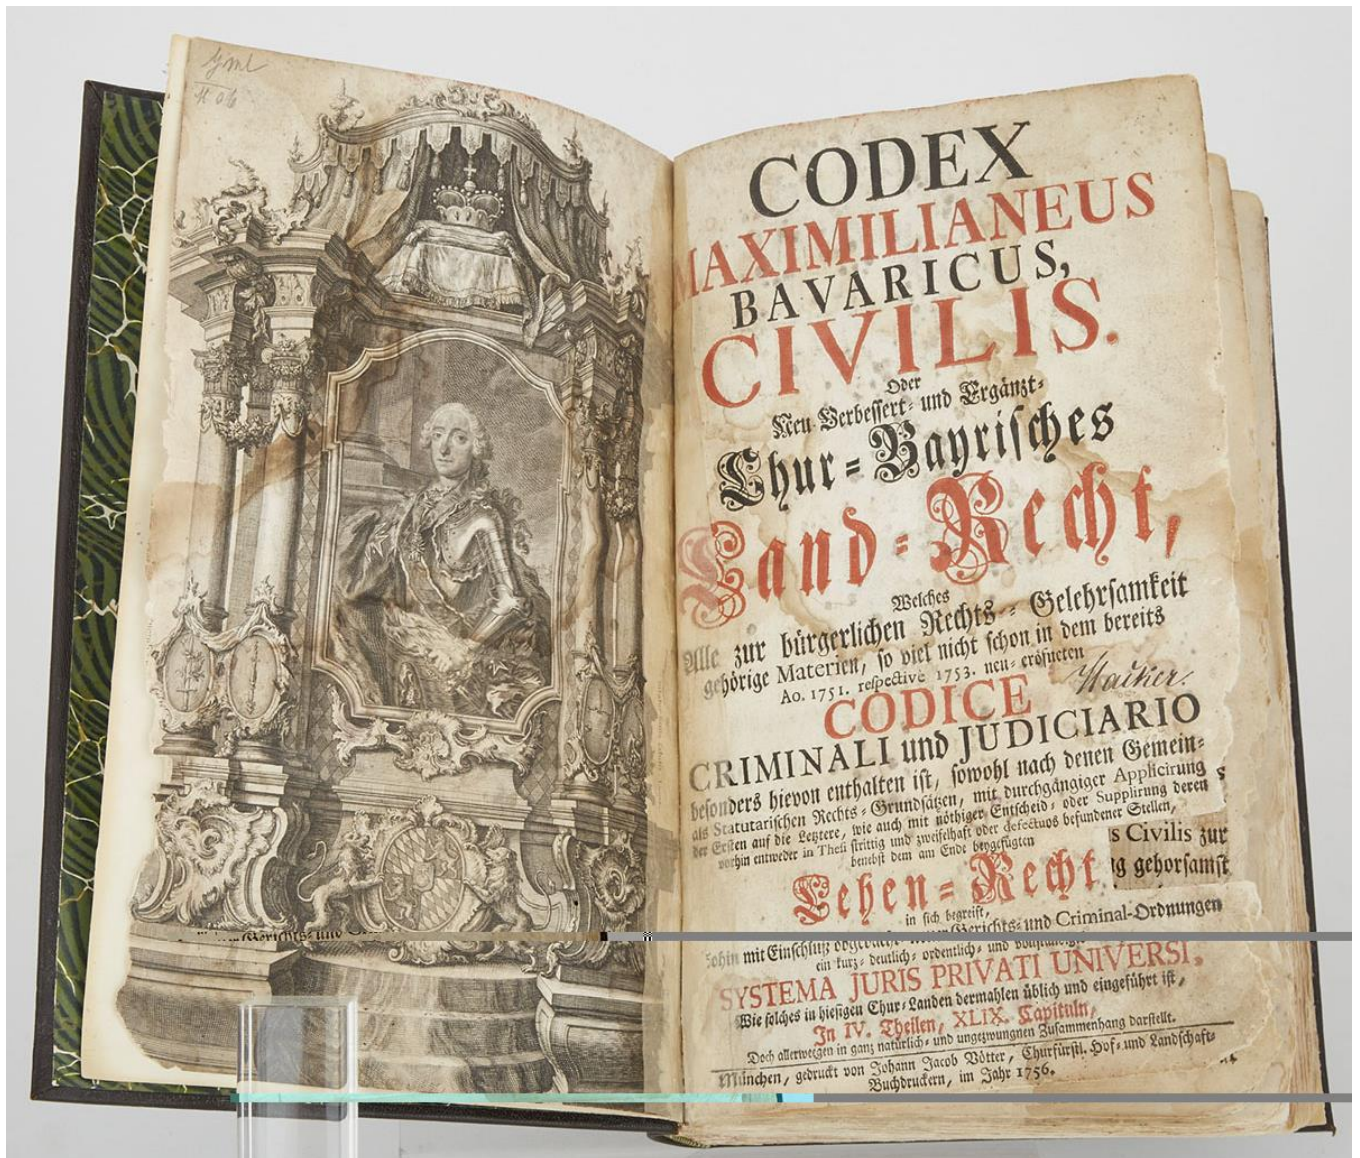 CODEX
MAXIMILIANEUS
BAVARICUS,
CIVILIS.
Oder
Neu-Verbessert- und Ergänzt-
Chur-Bayrisches
Land-Recht,
Welches
Alle zur bürgerlichen Rechts-Gelehrsamkeit
gehörige Materien, so viel nicht schon in dem bereits
Ao. 1751. respective 1753. neu-eröfneten
CODICE
CRIMINALI und JUDICIARIO
besonders hievon enthalten ist, sowohl nach denen Gemein-
als Statutarischen Rechts-Grundsätzen, mit durchgängiger Applicirung
der Ersten auf die Letztere, wie auch mit nöthiger Entscheid- oder Supplirung deren
vorhin entweder in Thesi strittig und zweifelhaft oder defectuos befundener Stellen,
benebst dem am Ende beygefügten
s Civilis zur
g gehorsamst
Lehen-Recht
in sich begreift,
mit Einschluß Gerichts- und Criminal-Ordnungen
ein kurz- deutlich- ordentlich- und
SYSTEMA JURIS PRIVATI UNIVERSI,
Wie solches in hiesigen Chur-Landen dermahlen üblich und eingeführt ist,
In IV. Theilen, XLIX. Capituln,
Doch allerweegen in ganz natürlich- und ungezwungnen Zusammenhang darstellt.
München, gedruckt von Johann Jacob Vötter, Churfürstl. Hof- und Landschafts-
Buchdruckern, im Jahr 1756.